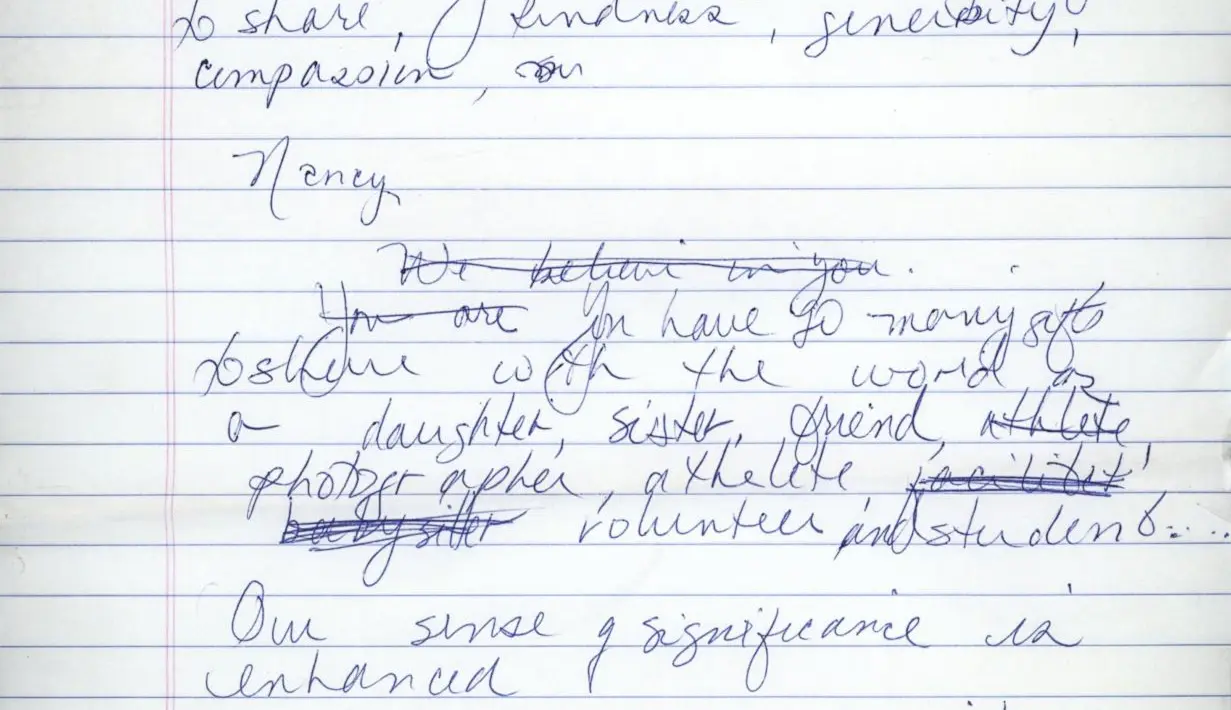 to share, kindness, generosity,
compassion, our
Nancy
We believe in you.
You are You have so many gifts
to share with the world as
a daughter, sister, friend, athlete,
photographer, athelete, facilitat
babysitter volunteer and student....
Our sense of significance is
enhanced